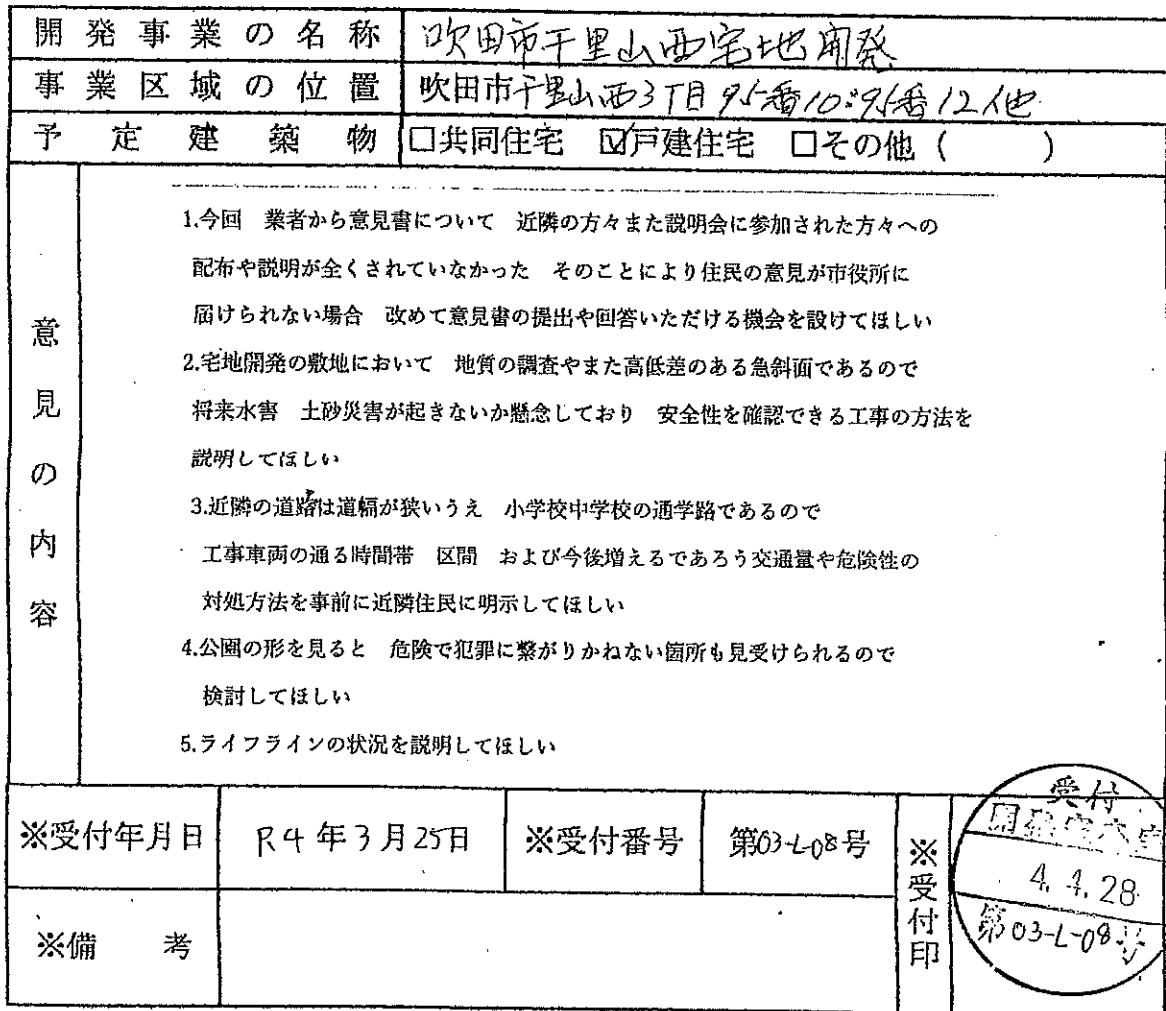 開発事業の名称 吹田市千里山西宅地開発
事業区域の位置 吹田市千里山西3丁目95番10:95番12他
予定建築物 □共同住宅 ☑戸建住宅 □その他（ ）
意見の内容
1.今回 業者から意見書について 近隣の方々また説明会に参加された方々への
配布や説明が全くされていなかった そのことにより住民の意見が市役所に
届けられない場合 改めて意見書の提出や回答いただける機会を設けてほしい
2.宅地開発の敷地において 地質の調査やまた高低差のある急斜面であるので
将来水害 土砂災害が起きないか懸念しており 安全性を確認できる工事の方法を
説明してほしい
3.近隣の道路は道幅が狭いうえ 小学校中学校の通学路であるので
工事車両の通る時間帯 区間 および今後増えるであろう交通量や危険性の
対処方法を事前に近隣住民に明示してほしい
4.公園の形を見ると 危険で犯罪に繋がりかねない箇所も見受けられるので
検討してほしい
5.ライフラインの状況を説明してほしい
※受付年月日 R4年3月25日 ※受付番号 第03-L-08号
※備考
※受付印
受付
4.4.28
第03-L-08号